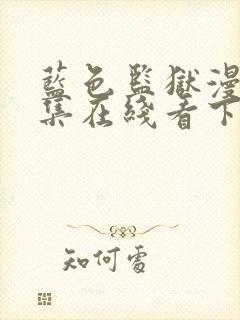 藍色監獄漫
集在綫看下
知何處